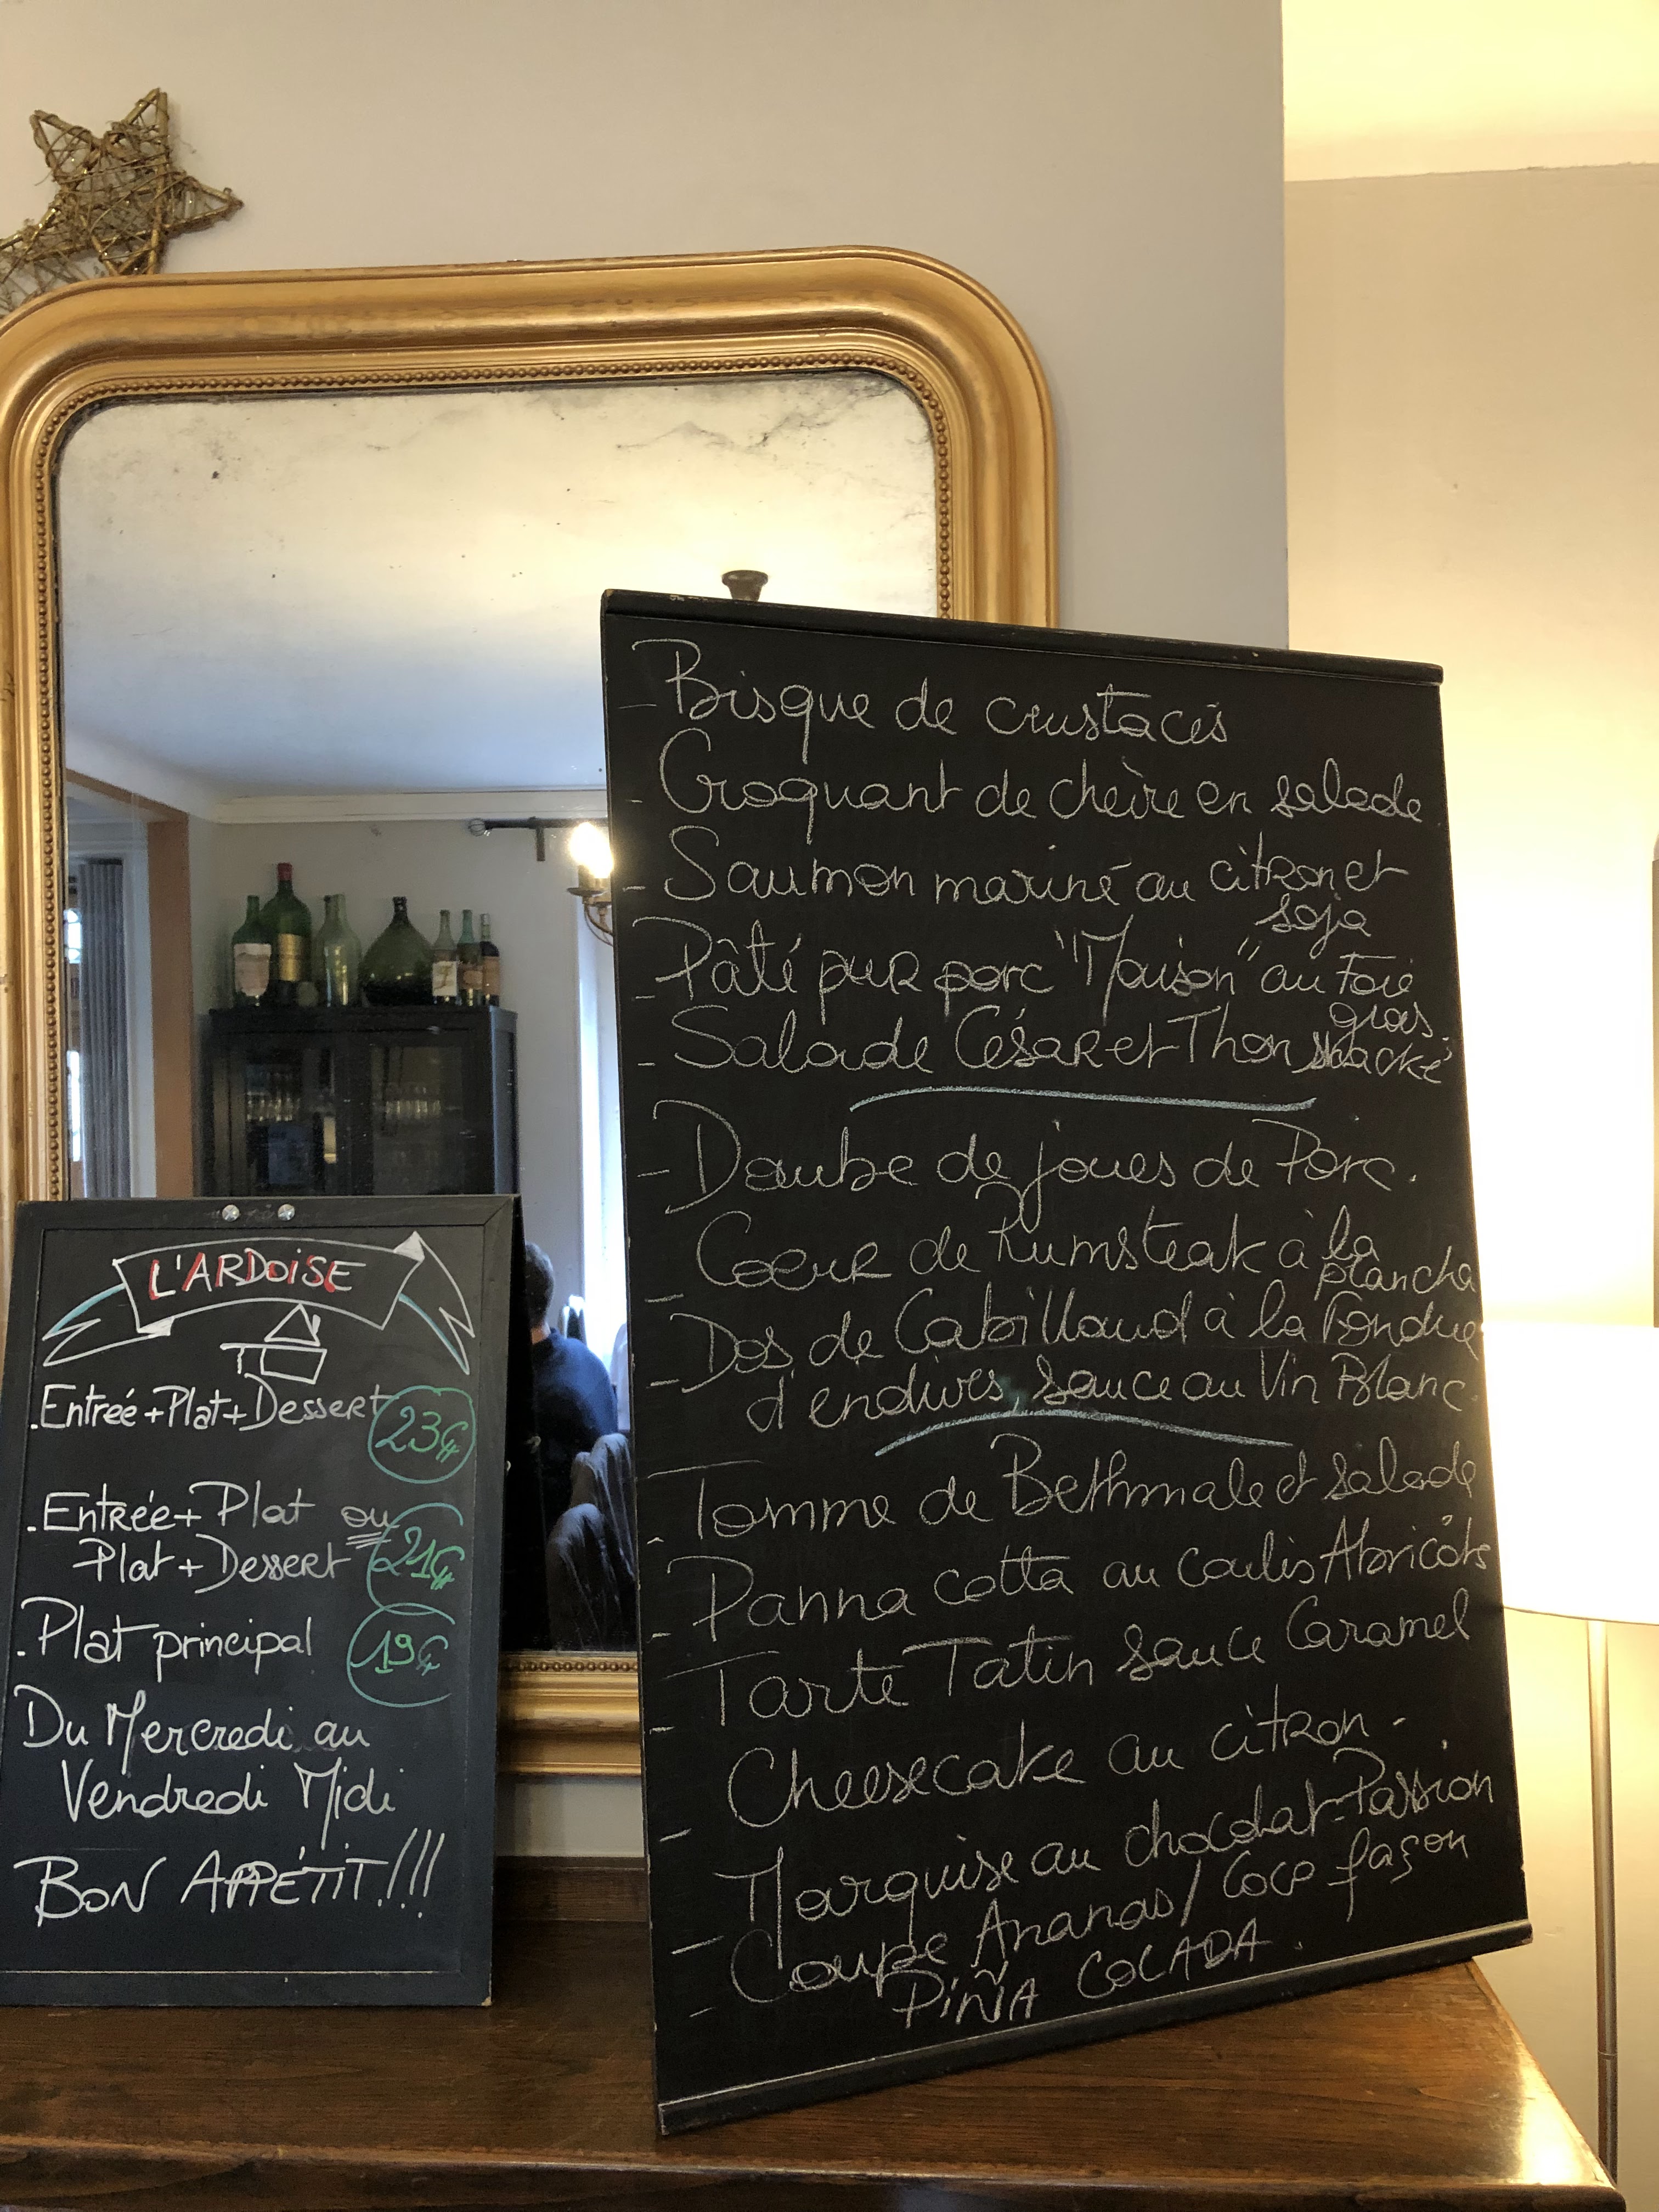 L'ARDOISE
.Entrée+Plat+Dessert 23€
.Entrée+Plat ou
Plat+Dessert 21€
.Plat principal 19€
Du Mercredi au
Vendredi Midi
BON APPÉTIT!!!
- Bisque de crustacés
- Croquant de chèvre en salade
- Saumon mariné au citron et
soja
- Pâté pur porc "Maison" au Foie
gras.
- Salade César et Thon snacké
- Daube de joues de Porc.
- Coeur de Rumsteak à la
plancha
- Dos de Cabillaud à la Fondue
d'endives, sauce au Vin Blanc.
- Tomme de Bethmale et salade
- Panna cotta au coulis Abricots
- Tarte Tatin sauce Caramel
- Cheesecake au citron -
- Marquise au chocolat-Passion
- Coupe Ananas/Coco façon
PIÑA COLADA.